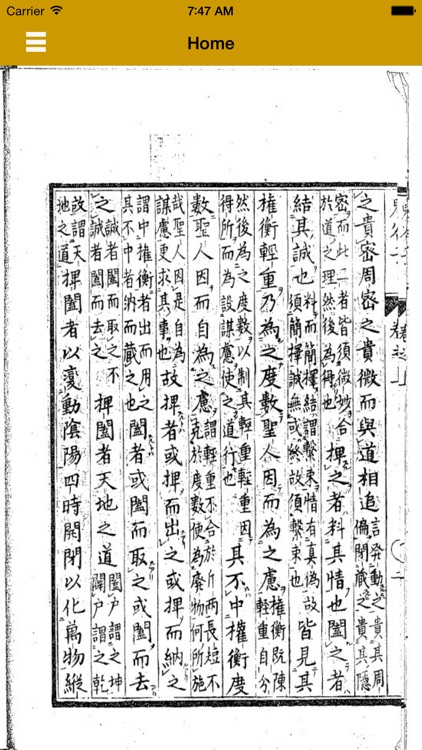 Carrier
7:47 AM
Home
之貴密周密之貴微而與道相追言發動之貴其周偏閉藏之貴其隱
密而此二者皆須微妙合於道之理然後為得也捭之者料其情也闔之者
結其誠也料而簡擇結謂繫束情有真偽故須簡擇誠無或終故須繫束也皆見其
權衡輕重乃為之度數聖人因而為之慮權衡既陳輕重自分
然後為之度數以制其輕重輕重因得所而為設謀慮使之道行也其不中權衡度
數聖人因而自為之慮謂輕重不合於斤兩長短不充於度數便為廢物何所施
哉聖人因是自為謀慮更求其事也故捭者或捭而出之或捭而納之
謂中權衡者出而用之其不中者納而藏之也闔者或闔而取之或闔而去
之誠者闔而取之不誠者闔而去之捭闔者天地之道闔戶謂之坤闢戶謂之乾
故謂天地之道捭闔者以變動陰陽四時開閉以化萬物縱